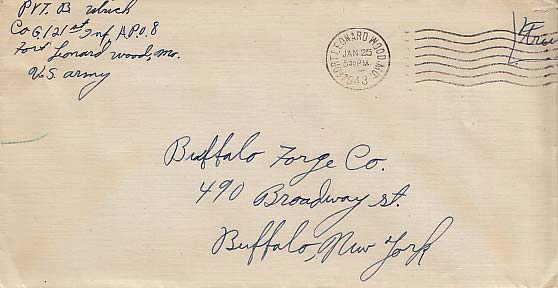 PVT. B Ulrich
Co G, 121st Inf A.P.O. 8
Fort Leonard Wood, Mo.
U.S. army
FORT LEONARD WOOD, MO.
JAN 25
5 30 P.M.
1943
Free
Buffalo Forge Co.
490 Broadway st.
Buffalo, New York